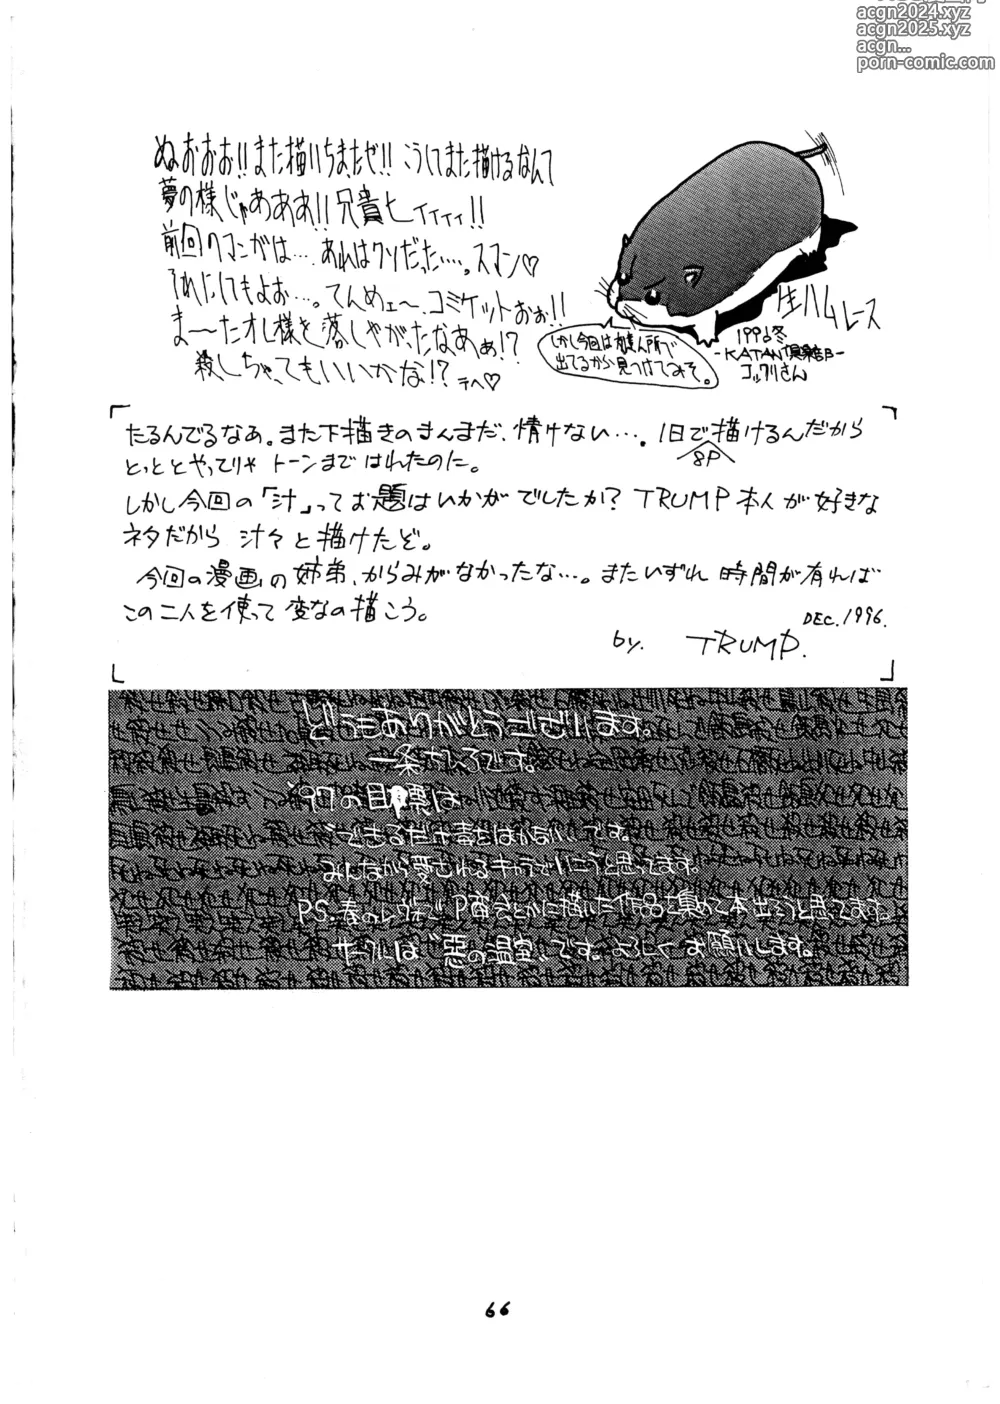 acgn2024.xyz
acgn2025.xyz
acgn...
porn-comic.com
ぬぉおおお!!また描いちまたぜ!! こうしてまた描けるなんて
夢の様じゃあああ!!兄貴ヒィィィィ!!
前回のマンガは…あれはクソだった…。スマン♡
それにしてもよお…。てんめェ〜、コミケットおぉ!!
ま〜たオレ様を落しやがったなあぁ!?
殺しちゃってもいいかな!?テヘ♡
しかし今回は
出てるから見つけてみそ。
生ハムレース
1996冬
-KATAN倶楽部-
コックリさん
たるんでるなあ。また下描きのまんまだ、情けない…。1日で描けるんだから
8P
とっととやってりゃトーンまではれたのに。
しかし今回の「汁」ってお題はいかがでしたか?TRUMP本人が好きな
ネタだから汁々と描けたぞ。
今回の漫画の姉弟、からみがなかったな…。またいずれ時間が有れば
この二人を使って変なの描こう。
DEC.1996.
by. TRUMP.
どうもありがとうございます。
一条 です。
'97の目標は
"できるだけ毒をはかない"です。
みんなから愛されるキャラでいこうと思ってます。
PS.春のレヴォで に描いた作品を集めて本出そうと思ってます
サークルは"悪の温室"です。よろしくお願いします。
66